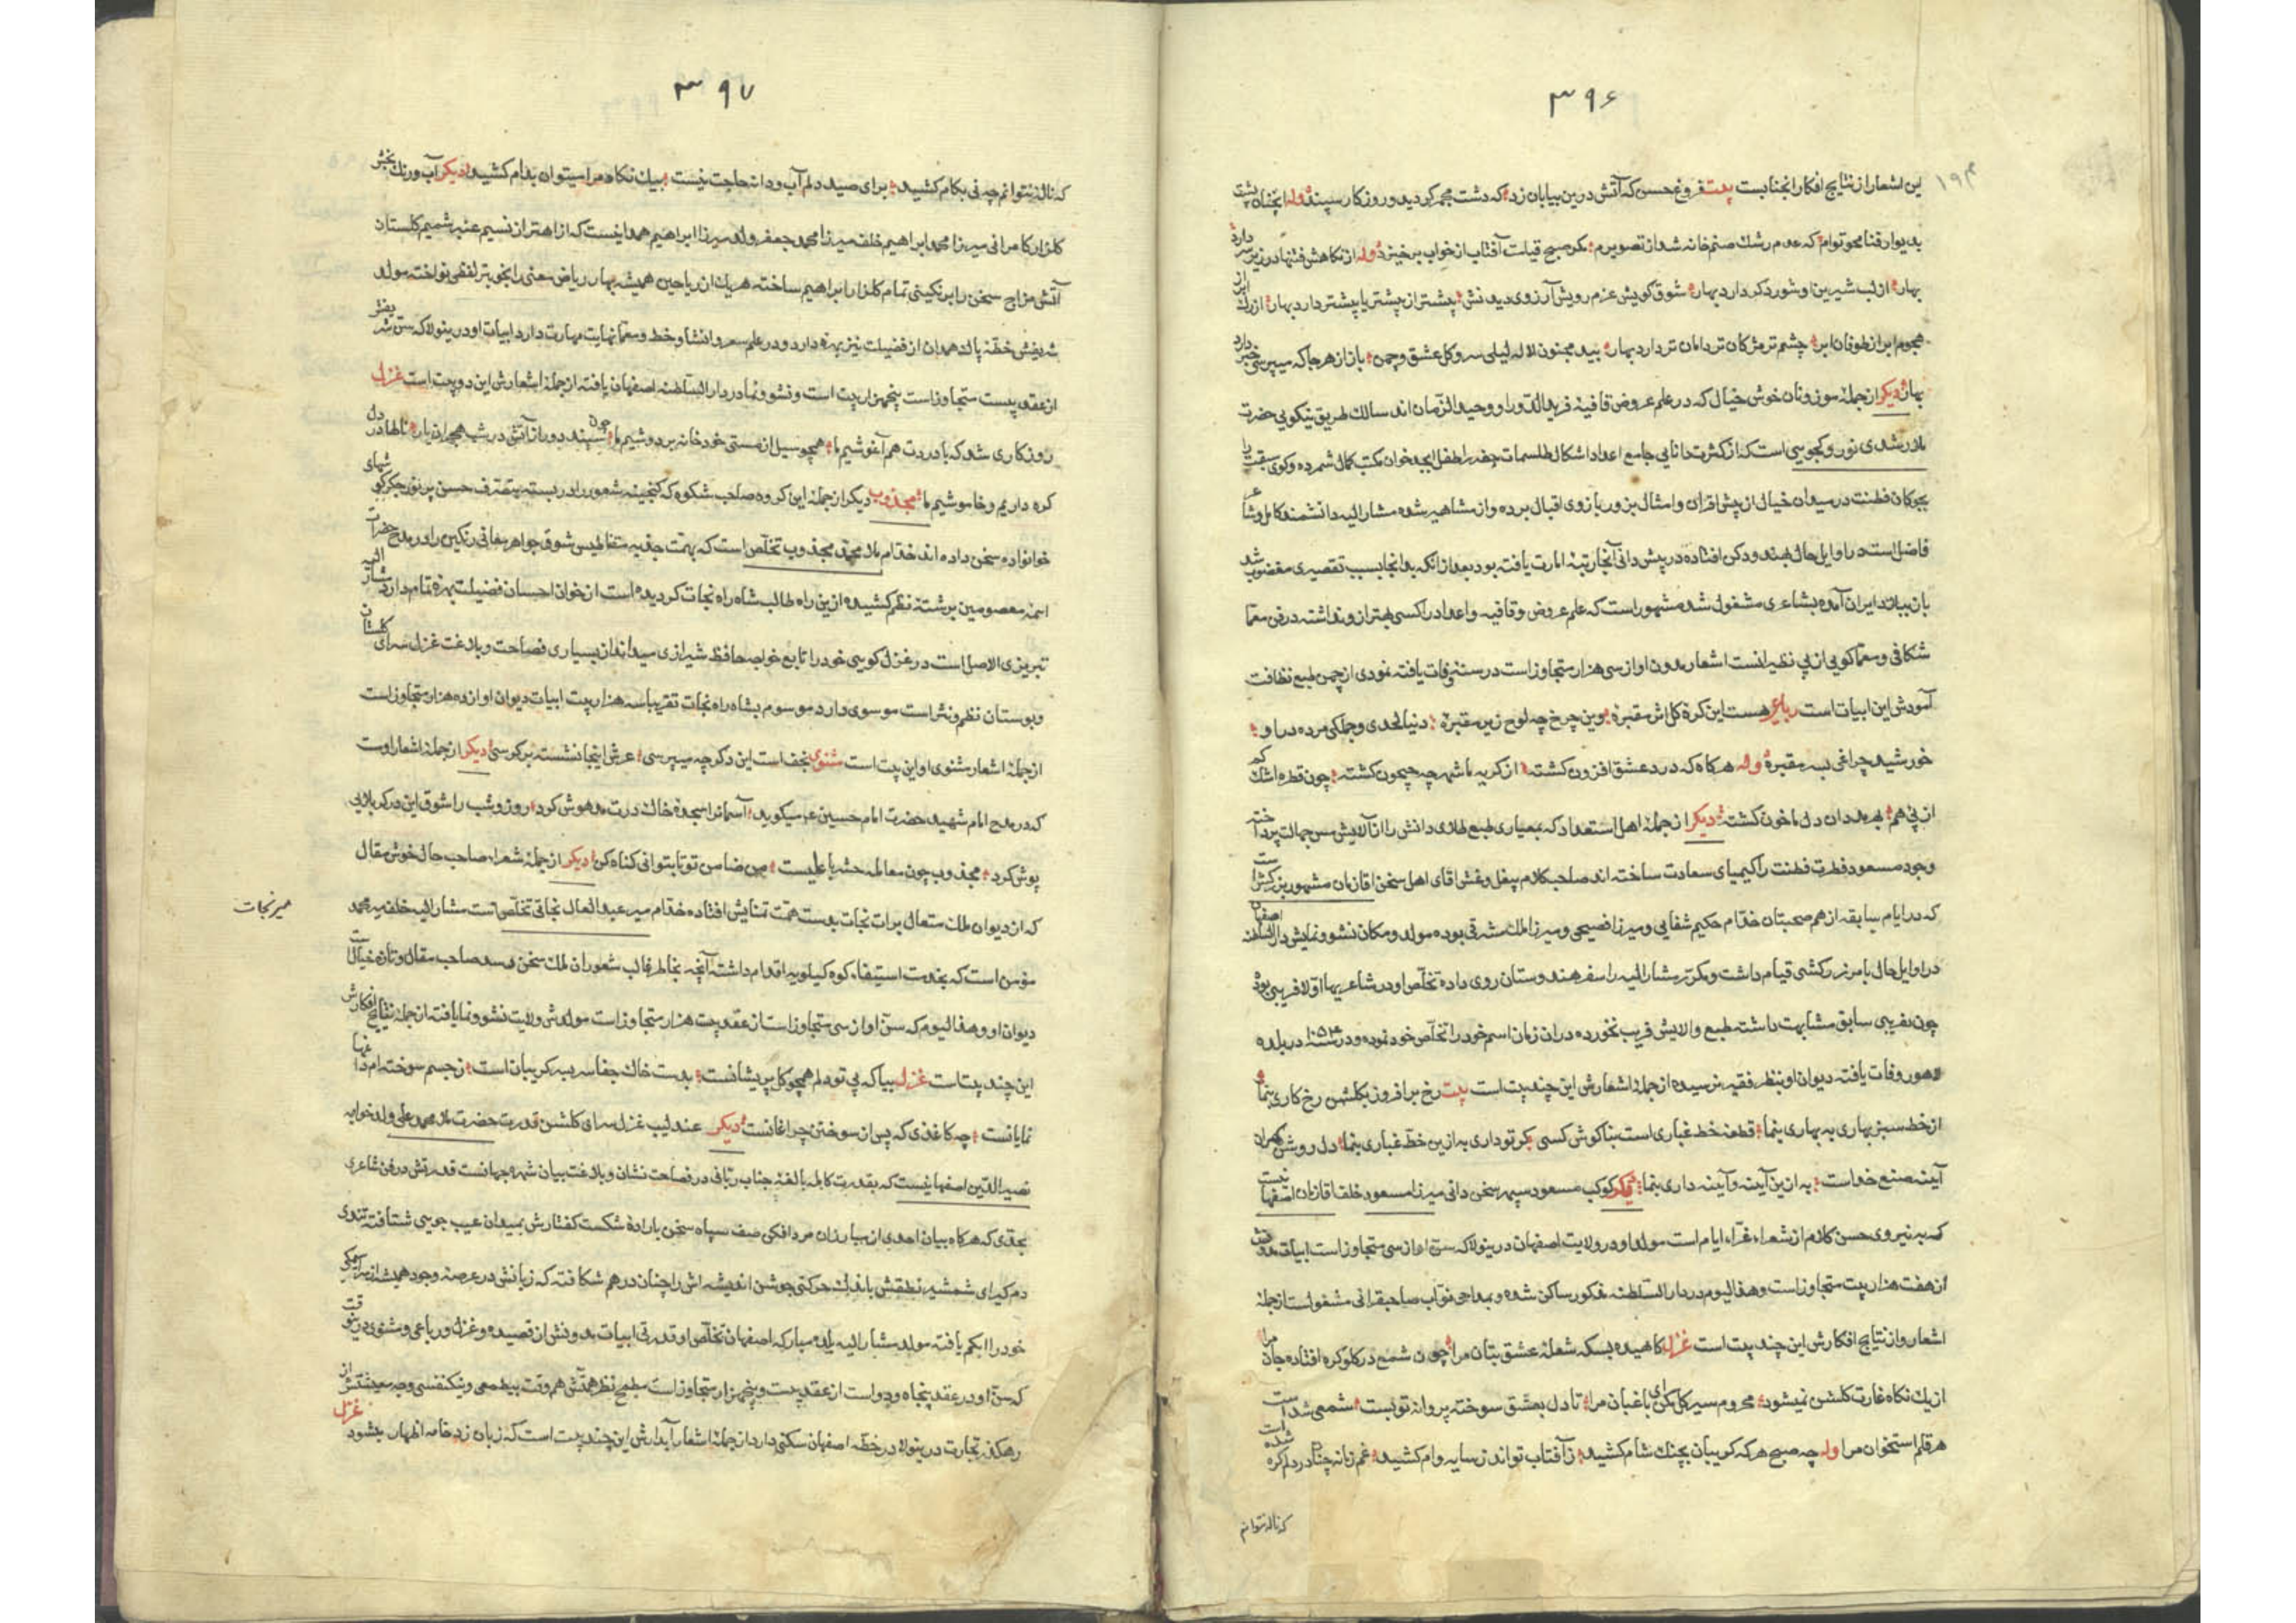 ۳۹۶
۱۹۴
این اشعار از نتایج افکار آنجنابست بیت فروغ حسن که آتش درین بیابان زد که دشت مجمر گردید و روزگار سپند وله آنچنان پشت
بدیوار فنا محو توام که عدم رشک صنم خانه شد از تصویرم مگر صبح قیامت آفتاب از خواب برخیزد وله از نگاهش فتنها در زیر سر دارد
بهار از لب شیرین او شور دگر دارد بهار شوق گویش عزم رویش آرزوی دیدنش پیشتر از پیشتر پا پیشتر دارد بهار از رگ ابر
هجوم ابر از طوفان ابر چشم تر مژگان تر دامان تر دارد بهار بید مجنون لاله لیلی سرو گل عشق و چمن باز از هر جا که میپرسی خبر دارد
بهار دیگر از جملهٔ موزونان خوش خیال که در علم عروض قافیه فرید الدّوران و وحید الزّمان اند سالک طریق نیکویی حضرت
ملا رشدی است که از کثرت دانایی جامع اعداد اشکال طلسمات جفر را طفل ابجد خوان مکتب کمال شمرده و گوی سبقت را
بچوکان فطنت در میدان خیالی از پیش اقران و امثال بزور بازوی اقبال برده و از مشاهیر شده مشار الیه دانشمند کامل و شاعر
فاضل است در اوایل حال بهند و دکن افتاده در پیش دانی آنجا رتبهٔ امارت یافته بود بعد از آنکه بدانجا بسبب تقصیری مغضوب شد
بازبیاد ایران آمده بشاعری مشغول شده مشهور است که علم عروض و قافیه و اعداد را کسی بهتر از و نداشته در فن معما
شکافی و معما گویی از بی نظیرانست اشعار مدون او از سی هزار متجاوز است در سنه وفات یافته نمودی از چمن طبع نظافت
آمودش این ابیات است رباعی هست این کرهٔ گل اش مقبره وین چرخ چه لوح زیر مقبره دنیا لحدی و جملگی مرده در او
خورشید چراغی بسر مقبره وله هرگاه که درد عشق افزون گشته از گریه ما شهر چه جیحون گشته چون قطره اشک کم
از پی هم بدر ان دل ما خون گشته دیگر از جمله اهل استعداد که بمعیاری طبع طلای دانش را از آلایش مس جهالت پرداخته
وجود مسعود فطرت فطنت را کیمیای سعادت ساخته اند صاحب کلام بیغل و غش اقای اهل سخن اقا زمان مشهور بزرکش است
که در ایام سابقه از هم صحبتان خدام حکیم شفایی و میرزا فصیحی و میرزا ملک مشرقی بوده مولد و مکان نشو و نمایش دار السلطنه اصفهان
در اوایل حال بامر زرکشی قیام داشت و مکرّر مشار الیه را سفر هندوستان روی داده تخلّص او در شاعریها اولا فریبی بود
چون بفریبی سابق مشابهت داشته طبع والایش فریب نخورده در ان زمان اسم خود را تخلّص خود نموده و در سنه ۱۰۵۴ در بلده
لاهور وفات یافته دیوان او بنظر فقیر نرسیده از جملهٔ اشعارش این چند بیت است بیت رخ برافروز بگلشن رخ کاری بنما
از خط سبز بهاری به بهاری بنما قطعهٔ خط غباری است بنا گوش کسی گر تو داری به ازین خطّ غباری بنما دل روشن گهران
آینه صنع خداست به ازین آینه و آینه داری بنما دیگر کوکب مسعود سپهر سخن دانی میرزا مسعود خلف اقا زمان اصفهانیست
که به نیروی حسن کلام از شعراء غرّاء ایام است مولد او در ولایت اصفهان درینولا که سنّ او از سی متجاوز است ابیات مدونش
از هفت هزار بیت متجاوز است و هذا الیوم در دار السلطنه مذکور ساکن شده و بمداحی نوّاب صاحبقرانی مشغولست از جمله
اشعار و از نتایج افکارش این چند بیت است غزل کاهیده بسکه شعلهٔ عشق بتان مرا چون شمع در گلو گره افتاده جان مرا
از یک نگاه غارت گلشن نمیشود محروم سیر گل مکن ای باغبان مرا تا دل بعشق سوخته پروانه تو بست شمعی شد است
هر قلم استخوان مرا وله چه صبح هر که گریبان بچنک شام کشید ز آفتاب تواند ز سایه وام کشید غم زمانه چنان در دلم گره شده است
که ناله نتوانم
۳۹۷
که ناله نتوانم چه نی بکام کشید برای صید دلم آب و دانه حاجت نیست بیک نگاه مرا میتوان بدام کشید دیگر آب و رنگ بخش
گلزار کامرانی میرزا محمد ابراهیم خلف میرزا محمد جعفر ولد میرزا ابراهیم همدانیست که از اهتزاز نسیم عنبر شمیم گلستان
آتش مزاج سخن را برنگینی تمام گلزار ابراهیم ساخته هر یک از ریاحین همیشه بهار ریاض معنی را بخوبتر لفظی نواخته مولد
شریفش خطّهٔ پاک همدان از فضیلت نیز بهره دارد و در علم شعر و انشا و خط و معما نهایت مهارت دارد ابیات او درینولا که سنّ شریفش
از عقد بیست متجاوز است پنجهزار بیت است و نشو و نما در دار السّلطنه اصفهان یافته از جملهٔ اشعارش این دو بیت است غزل
روزگاری شد که با دردت هم آغوشیم ما همچو سیل از مستی خود خانه بر دوشیم ما چون سپند دور از آتش در شب هجران یار ناله در دل
گره داریم و خاموشیم ما مجذوب دیگر از جمله این گروه صاحب شکوه که گنجینه شعور را دربسته بتصرّف حسن پر نور جگر گوشهای
خانواده سخن داده اند خدّام ملا محمّد مجذوب تخلّص است که بهمّت جذبه مقناطیس شوق جواهر معانی رنگین را در مدح حضرات
ائمهٔ معصومین برشتهٔ نظم کشیده ازین راه طالب شاه راه نجات گردیده است از خوان احسان فضیلت بهره تمام دارد مشار الیه
تبریزی الاصل است در غزل گویی خود را تابع خواجه حافظ شیرازی میداند از بسیاری فصاحت و بلاغت غزل سرای گلستان
و بوستان نظم و نثر است موسوی دارد موسوم بشاه راه نجات تقریبا سه هزار بیت ابیات دیوان او از ده هزار متجاوز است
از جملهٔ اشعار مثنوی او این بیت است مثنوی نجف است این دگر چه میپرسی عرش اینجا نشسته بر کرسی دیگر از جمله اشعار اوست
که در مدح امام شهید حضرت امام حسین عم میگوید آسمانرا سجده خاک درت مدهوش کرد روز و شب را شوق این در کربلایی
پوش کرد مجذوب چون معامله حشر با علیست من ضامن تو تا بتوانی گناه کن دیگر از جملهٔ شعراء صاحب حال خوش مقال
که از دیوان ملک متعال برات نجات بدست همّت تمنایش افتاده خدّام میر عبد العال نجاتی تخلّص است مشار الیه خلف میر محمد
میر نجات
مؤمن است که بخدمت استیفاء کوه کیلویه اقدام داشته آنچه بخاطر غالب شعوران ملک سخن رسد صاحب مقال و تازه خیال است
دیوان او و هذا الیوم که سنّ او از سی متجاوز است از عقد بیست هزار متجاوز است مولدش ولایت نشو و نما یافته از جملهٔ نتایج افکارش
این چند بیت است غزل بیا که بی تو دلم همچو گل پریشانست بدست خاک جفا سر به گریبان است ز جسم سوخته ام داغها
نمایانست چه کاغذی که پس از سوختن چراغانست دیگر عندلیب غزل سرای گلشن قدرت حضرت ملا محمد علی ولد خواجه
نصیر الدّین اصفهانیست که بقدرت کامله بالغهٔ جناب ربّانی در فصاحت نشان و بلاغت بیان شهره جهانست قدرتش در فن شاعری
بحدّی که هرگاه بیان احدی از مبارزان مرد افکن صف سپاه سخن بارادهٔ شکست گفتارش بمیدان عیب جویی شتافته تندی
دم گیرای شمشیر نطقش باندک حرکتی جوشن اندیشه اش را چنان در هم شکافته که زبانش در عرصهٔ وجود همیشه از سر
خود را ابکم یافته مولد مشار الیه بلده مبارکه اصفهان تخلّص او قدرتی ابیات مدونش از قصیده و غزل و رباعی و مثنوی درینوقت
که سنّ او در عقد پنجاه و دو است از عقد بیست و پنجهزار متجاوز است مطمح نظر همّتش هم وقت بیطمعی و نیکنفسی وجه معیشتش از
رهگذر تجارت درینولا در خطّه اصفهان سکنی دارد از جملهٔ اشعار آبدارش این چند بیت است که زبان زد خامه اظهار میشود غزل